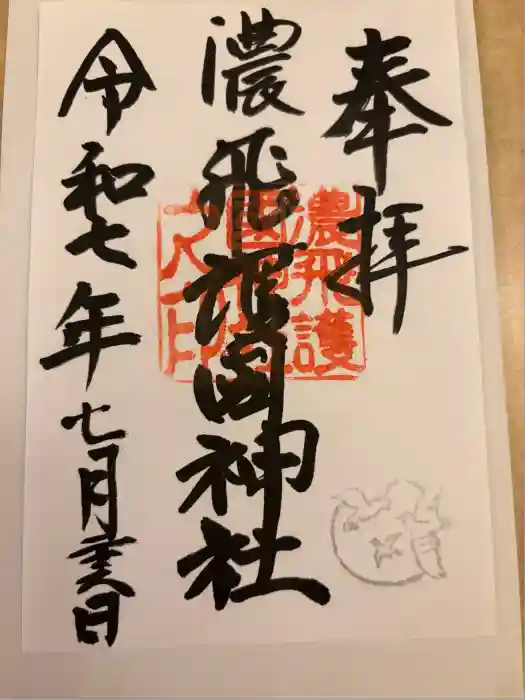 奉拝
濃飛護国神社
令和七年七月 日
濃飛護
國
之印